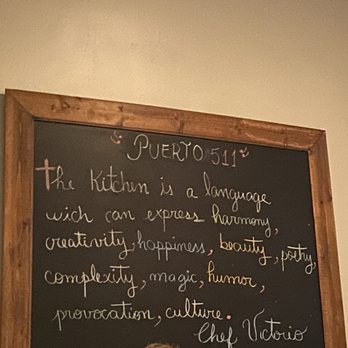 PUERTO 511
the Kitchen is a language
wich can express harmony,
creativity, happiness, beauty, poetry,
complexity, magic, humor,
provocation, culture.
Chef Victorio